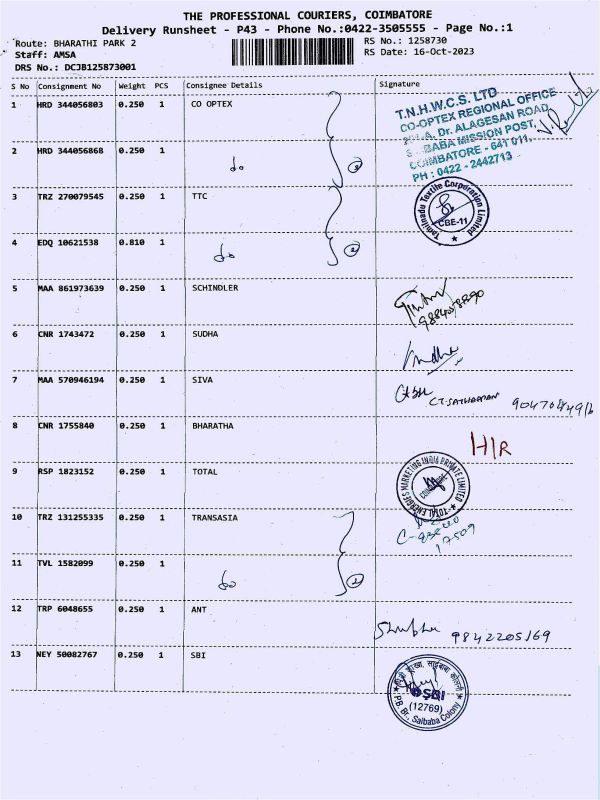 THE PROFESSIONAL COURIERS, COIMBATORE
Delivery Runsheet - P43 - Phone No.:0422-3505555 - Page No.:1
Route: BHARATHI PARK 2 RS No.: 1258730
Staff: AMSA RS Date: 16-Oct-2023
DRS No.: DCJB125873001
S No Consignment No Weight PCS Consignee Details Signature
1 HRD 344056803 0.250 1 CO OPTEX
T.N.H.W.C.S. LTD
CO-OPTEX REGIONAL OFFICE
Dr. ALAGESAN ROAD,
BABA MISSION POST,
COIMBATORE - 641 011,
PH : 0422 - 2442713
2 HRD 344056868 0.250 1 do 2
3 TRZ 270079545 0.250 1 TTC
Tamilnadu Textile Corporation Limited
CBE-11
4 EDQ 10621538 0.810 1 do 2
5 MAA 861973639 0.250 1 SCHINDLER
6 CNR 1743472 0.250 1 SUDHA
Sudha
7 MAA 570946194 0.250 1 SIVA
8 CNR 1755840 0.250 1 BHARATHA
H/R
9 RSP 1823152 0.250 1 TOTAL
TOTAL ENERGIES MARKETING INDIA PRIVATE LIMITED
10 TRZ 131255335 0.250 1 TRANSASIA
17509
11 TVL 1582099 0.250 1 do 2
12 TRP 6048655 0.250 1 ANT
9842205169
13 NEY 50082767 0.250 1 SBI
साईबाबा कोलनी
SBI
(12769)
PB Br., Saibaba Colony